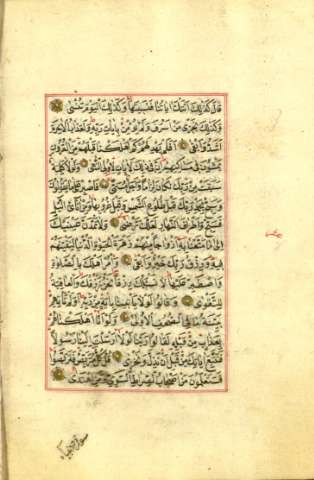 قَالَ كَذَٰلِكَ اَتَتْكَ اٰيَاتُنَا فَنَسِيتَهَا وَكَذَٰلِكَ الْيَوْمَ تُنْسٰى
وَكَذَٰلِكَ نَجْزِى مَنْ اَسْرَفَ وَلَمْ يُؤْمِنْ بِاٰيَاتِ رَبِّهِ وَلَعَذَابُ الْاٰخِرَةِ
اَشَدُّ وَاَبْقٰى اَفَلَمْ يَهْدِ لَهُمْ كَمْ اَهْلَكْنَا قَبْلَهُمْ مِنَ الْقُرُونِ
يَمْشُونَ فِى مَسَاكِنِهِمْ اِنَّ فِى ذَٰلِكَ لَاٰيَاتٍ لِاُولِى النُّهٰى وَلَوْلَا كَلِمَةٌ
سَبَقَتْ مِنْ رَبِّكَ لَكَانَ لِزَامًا وَاَجَلٌ مُسَمًّى فَاصْبِرْ عَلٰى مَا يَقُولُونَ
وَسَبِّحْ بِحَمْدِ رَبِّكَ قَبْلَ طُلُوعِ الشَّمْسِ وَقَبْلَ غُرُوبِهَا وَمِنْ اٰنَائِ الَّيْلِ
فَسَبِّحْ وَاَطْرَافَ النَّهَارِ لَعَلَّكَ تَرْضٰى وَلَا تَمُدَّنَّ عَيْنَيْكَ
اِلٰى مَا مَتَّعْنَا بِهِ اَزْوَاجًا مِنْهُمْ زَهْرَةَ الْحَيٰوةِ الدُّنْيَا لِنَفْتِنَهُمْ
فِيهِ وَرِزْقُ رَبِّكَ خَيْرٌ وَاَبْقٰى وَأْمُرْ اَهْلَكَ بِالصَّلٰوةِ
وَاصْطَبِرْ عَلَيْهَا لَا نَسْئَلُكَ رِزْقًا نَحْنُ نَرْزُقُكَ وَالْعَاقِبَةُ
لِلتَّقْوٰى وَقَالُوا لَوْلَا يَأْتِينَا بِاٰيَةٍ مِنْ رَبِّهِ اَوَلَمْ تَأْتِهِمْ
بَيِّنَةُ مَا فِى الصُّحُفِ الْاُولٰى وَلَوْ اَنَّا اَهْلَكْنَاهُمْ
بِعَذَابٍ مِنْ قَبْلِهِ لَقَالُوا رَبَّنَا لَوْلَا اَرْسَلْتَ اِلَيْنَا رَسُولًا
فَنَتَّبِعَ اٰيَاتِكَ مِنْ قَبْلِ اَنْ نَذِلَّ وَنَخْزٰى قُلْ كُلٌّ مُتَرَبِّصٌ فَتَرَبَّصُوا
فَسَتَعْلَمُونَ مَنْ اَصْحَابُ الصِّرَاطِ السَّوِىِّ وَمَنِ اهْتَدٰى